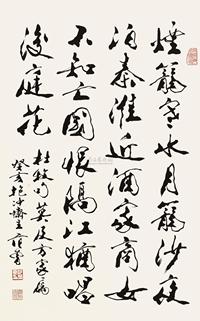 煙籠寒水月籠沙夜
泊秦淮近酒家商女
不知亡國恨隔江猶唱
後庭花
杜牧句方家屬
癸亥抱沖齋主范曾